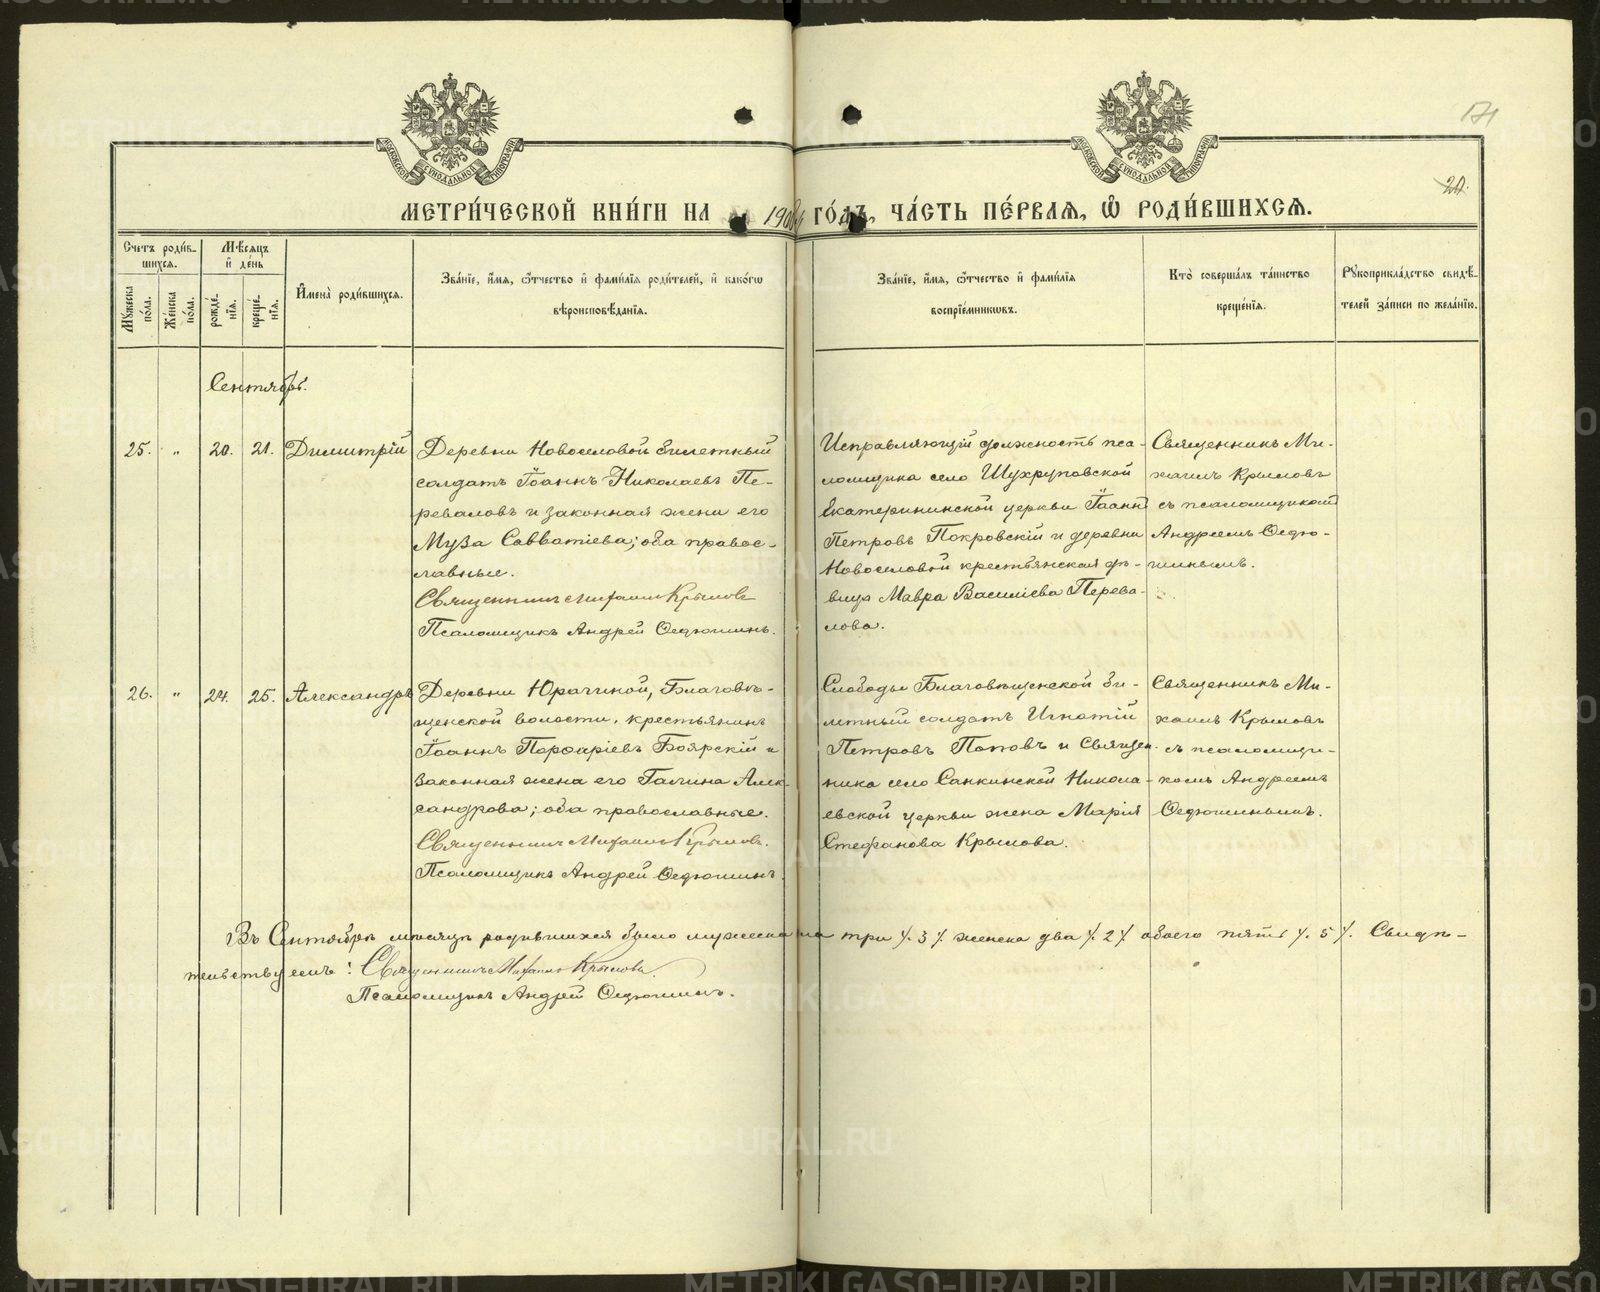 171
20.
МОСКОВСКОЙ СУНОДАЛЬНОЙ ТИПОГРАФІИ
МОСКОВСКОЙ СУНОДАЛЬНОЙ ТИПОГРАФІИ
МЕТРИ́ЧЕСКОЙ КНИ́ГИ НА 190 ГО́ДЪ, ЧА́СТЬ ПЕ́РВАЯ, Ѽ РОДИ́ВШИХСѦ.
Счетъ роди́в-
шихсѧ.
Мѣ́сѧцъ
и҆ де́нь
Мꙋжеска
по́ла.
Же́нска
по́ла.
рожде́-
нїѧ.
креще́-
нїѧ.
И҆мена̀ роди́вшихсѧ.
Зва́нїе, и҆́мѧ, ѻ҆́тчество и҆ фами́лїѧ роди́телей, и҆ како́гѡ
вѣроисповѣ́данїѧ.
Зва́нїе, и҆́мѧ, ѻ҆́тчество и҆ фами́лїѧ
воспрїе́мникѡвъ.
Кто̀ соверша́лъ та́инство
креще́нїѧ.
Рꙋкоприкла́дство свидѣ́-
телей за́писи по жела́нїю.
Сентябрь.
25. „ 20. 21. Димитрій
Деревни Новоселовой билетный
солдатъ Іоаннъ Николаевъ Пе-
реваловъ и законная жена его
Муза Савватіева; оба правос-
лавные.
Священникъ Михаилъ Крыловъ
Псаломщикъ Андрей Ѳедюшинъ.
Исправляющій должность пса-
ломщика село Шухруповской
Екатерининской церкви Іоаннъ
Петровъ Покровскій и деревни
Новоселовой крестьянская дѣ-
вица Мавра Василіева Перева-
лова.
Священникъ Ми-
хаилъ Крыловъ
съ псаломщикомъ
Андреемъ Ѳедю-
шинымъ.
26. „ 24. 25. Александръ
Деревни Юрачиной, Благовѣ-
щенской волости, крестьянинъ
Іоаннъ Порфиріевъ Боярскій и
законная жена его Галина Алек-
сандрова; оба православные.
Священникъ Михаилъ Крыловъ.
Псаломщикъ Андрей Ѳедюшинъ.
Слободы Благовѣщенской би-
летный солдатъ Игнатій
Петровъ Поповъ и Священ-
ника село Санкинской Никола-
евской церкви жена Марія
Стефанова Крылова.
Священникъ Ми-
хаилъ Крыловъ
съ псаломщи-
комъ Андреемъ
Ѳедюшинымъ.
Въ Сентябрѣ мѣсяцѣ родившихся было мужеска пола три /. 3 /. женска два /. 2 /. обоего пять /. 5 /. Свидѣ-
тельствуемъ: Священникъ Михаилъ Крыловъ.
Псаломщикъ Андрей Ѳедюшинъ.
METRIKI.GASO-URAL.RU